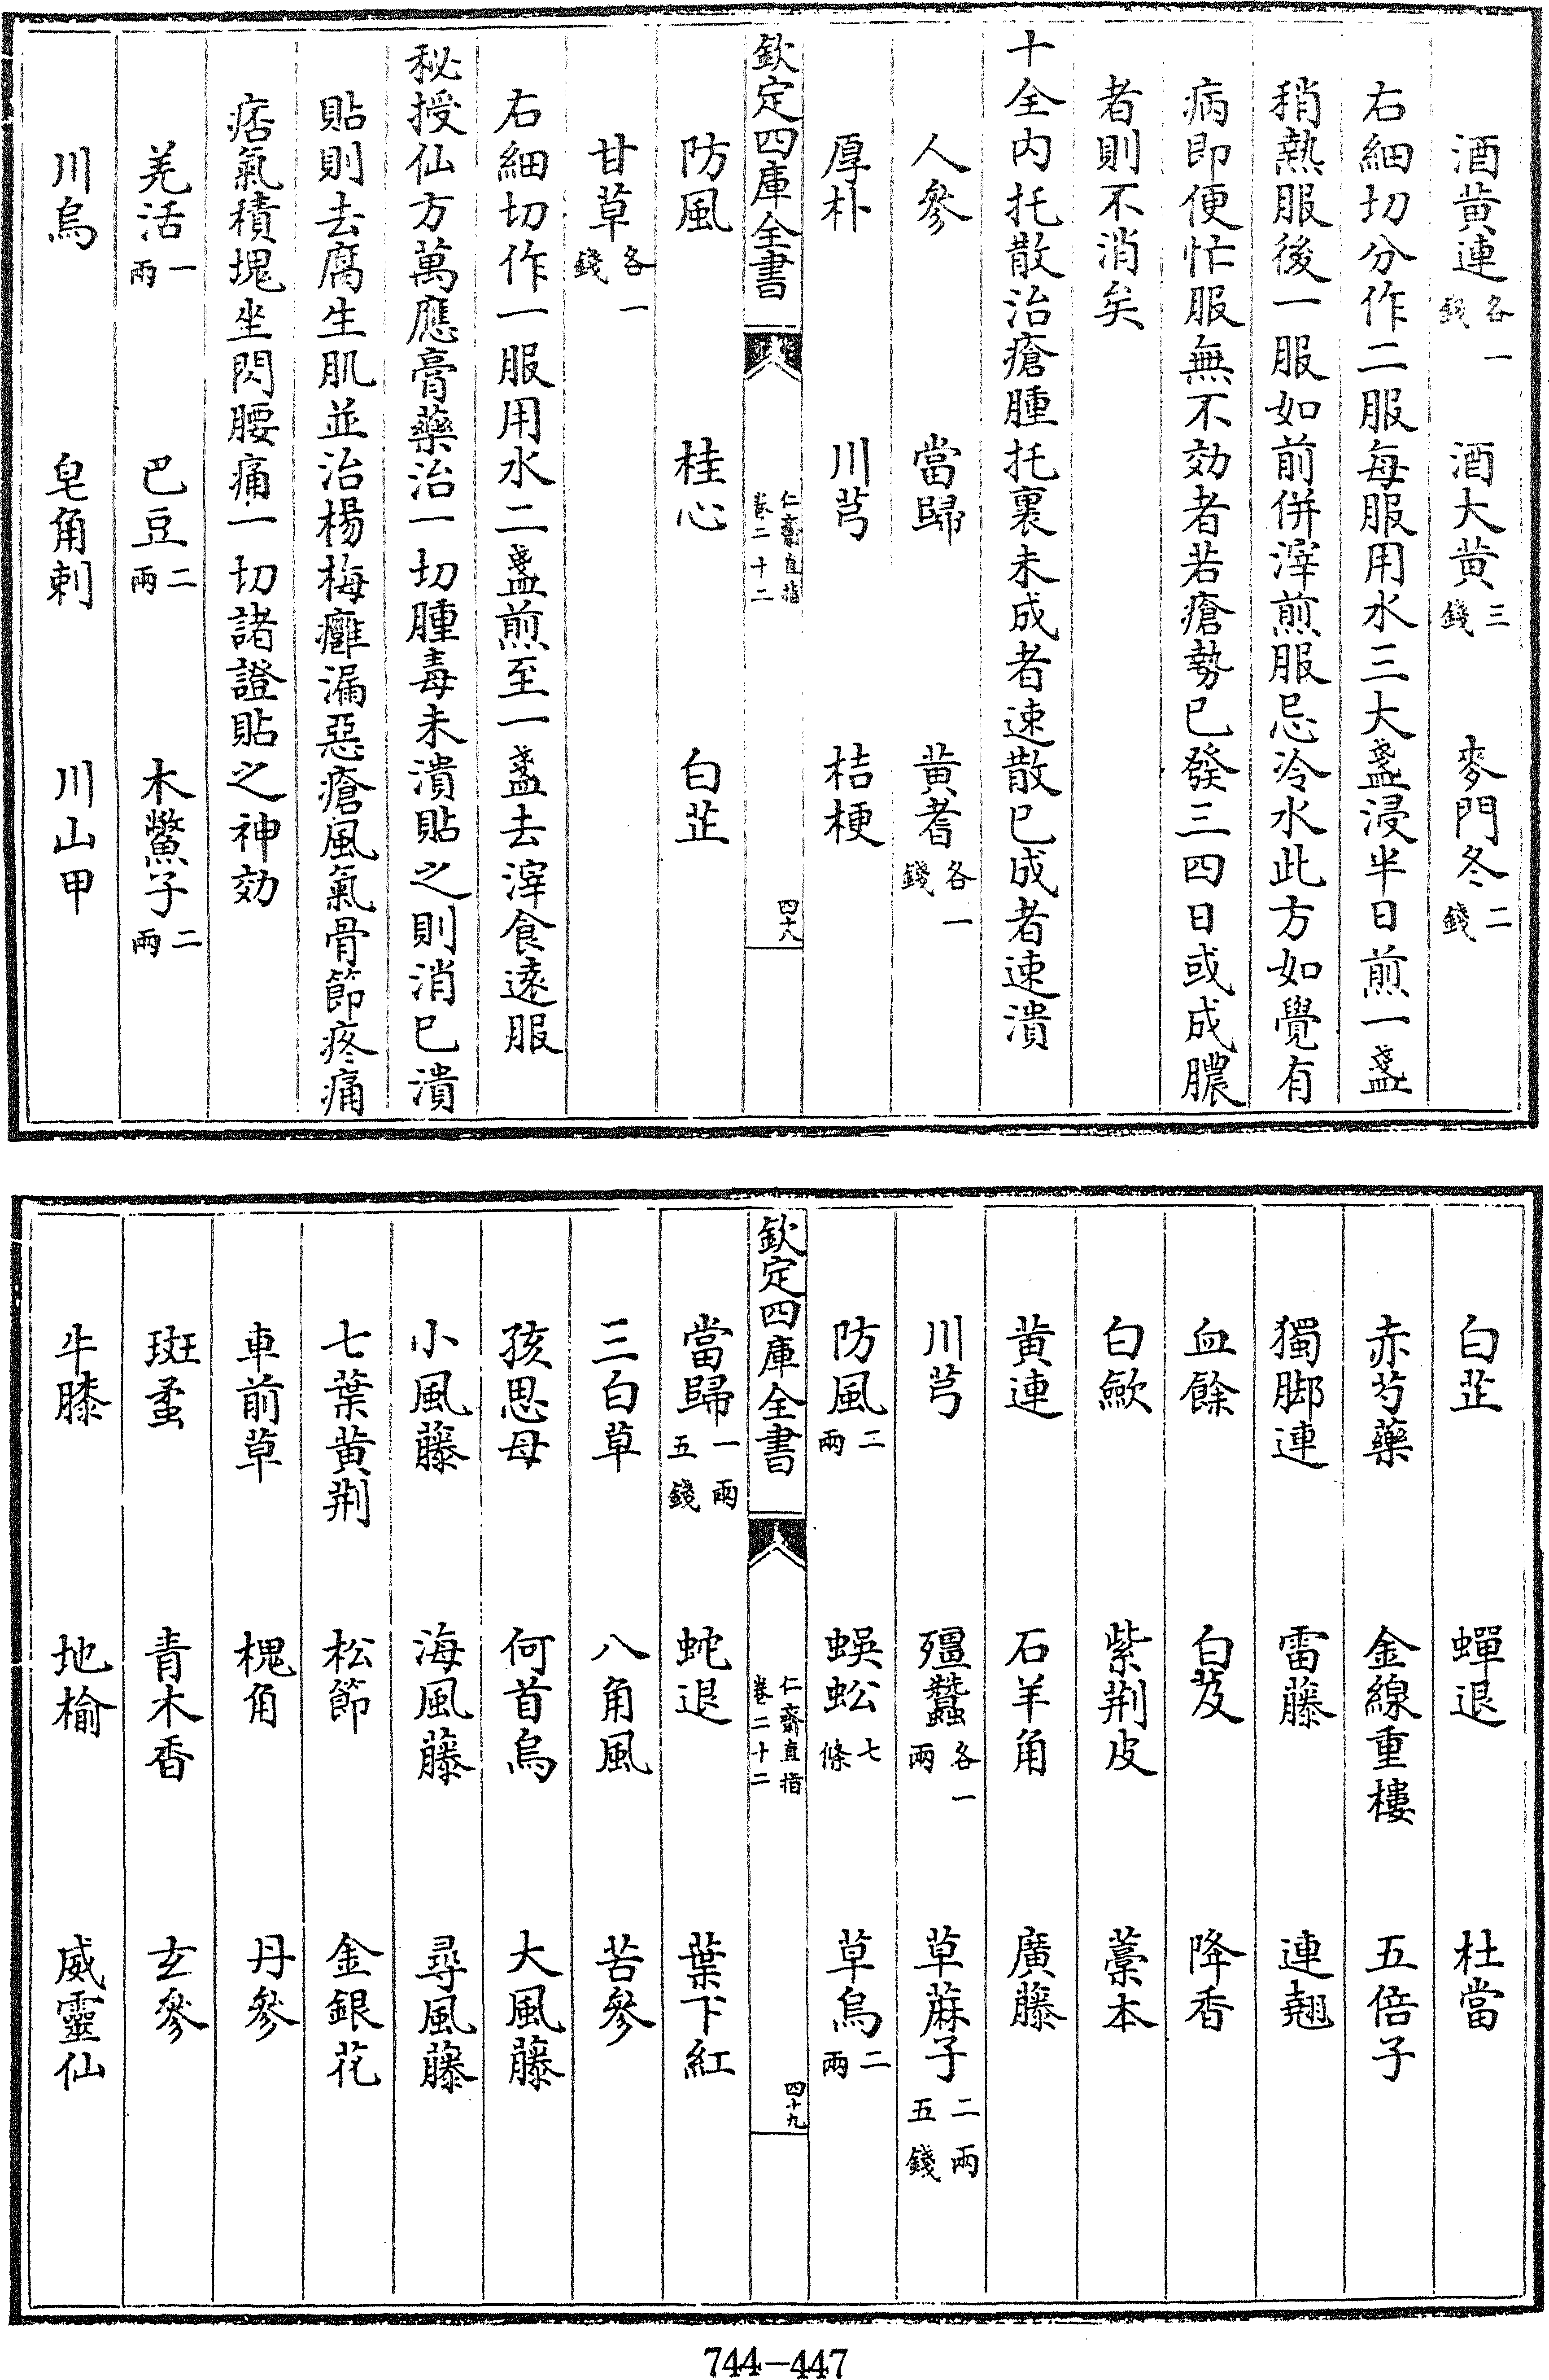 酒黄連各一錢　酒大黄三錢　麥門冬二錢
右細切分作二服每服用水三大盞浸半日煎一盞
稍熱服後一服如前併滓煎服忌冷水此方如覺有
病即便忙服無不効者若瘡勢已發三四日或成膿
者則不消矣
十全内托散治瘡腫托裏未成者速散已成者速潰
人參　當歸　黄耆各一錢
厚朴　川芎　桔梗
欽定四庫全書　仁齋直指卷二十二　四十八
防風　桂心　白芷
甘草各一錢
右細切作一服用水二盞煎至一盞去滓食遠服
秘授仙方萬應膏藥治一切腫毒未潰貼之則消已潰
貼則去腐生肌並治楊梅癰漏惡瘡風氣骨節疼痛
痞氣積塊坐閃腰痛一切諸證貼之神効
羌活一兩　巴豆二兩　木鱉子二兩
川烏　皂角刺　川山甲
白芷　蟬退　杜當
赤芍藥　金線重樓　五倍子
獨脚連　雷藤　連翹
血餘　白芨　降香
白蘞　紫荆皮　藁本
黄連　石羊角　廣藤
川芎　殭蠶各一兩　草蔴子二兩五錢
防風二兩　蜈蚣七條　草烏二兩
欽定四庫全書　仁齋直指卷二十二　四十九
當歸一兩五錢　蛇退　葉下紅
三白草　八角風　苦參
孩思母　何首烏　大風藤
小風藤　海風藤　尋風藤
七葉黄荆　松節　金銀花
車前草　槐角　丹參
斑蝥　青木香　玄參
牛膝　地榆　威靈仙
744-447